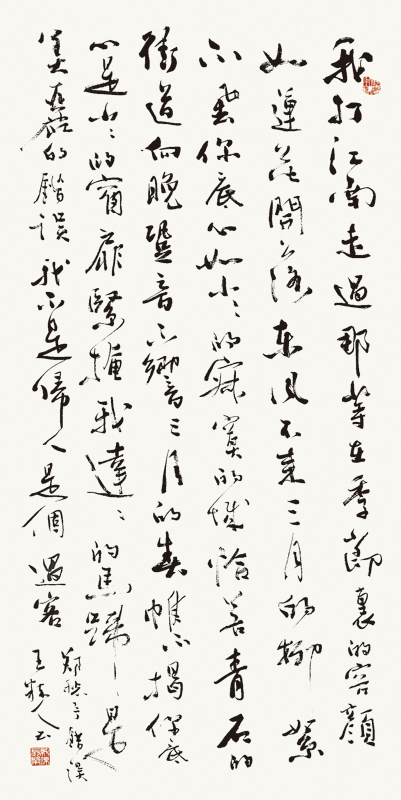 我打江南走過那等在季節裏的容顏
如蓮花開落東風不來三月的柳絮
不飛你底心如小小的寂寞的城恰若青石的
街道向晚跫音不響三月的春帷不揭你底
心是小小的窗扉緊掩我達達的馬蹄是
美麗的錯誤我不是歸人是個過客
鄭愁予錯誤
王人書